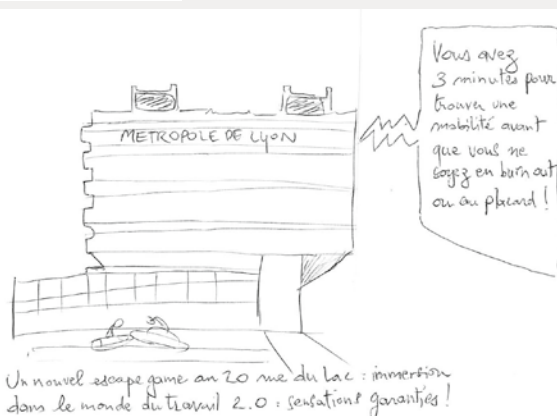 METROPOLE DE LYON
Vous avez
3 minutes pour
trouver une
mobilité avant
que vous ne
soyez en burn out
ou au placard !
Un nouvel escape game au 20 rue du Lac : immersion
dans le monde du travail 2.0 : sensations garanties !